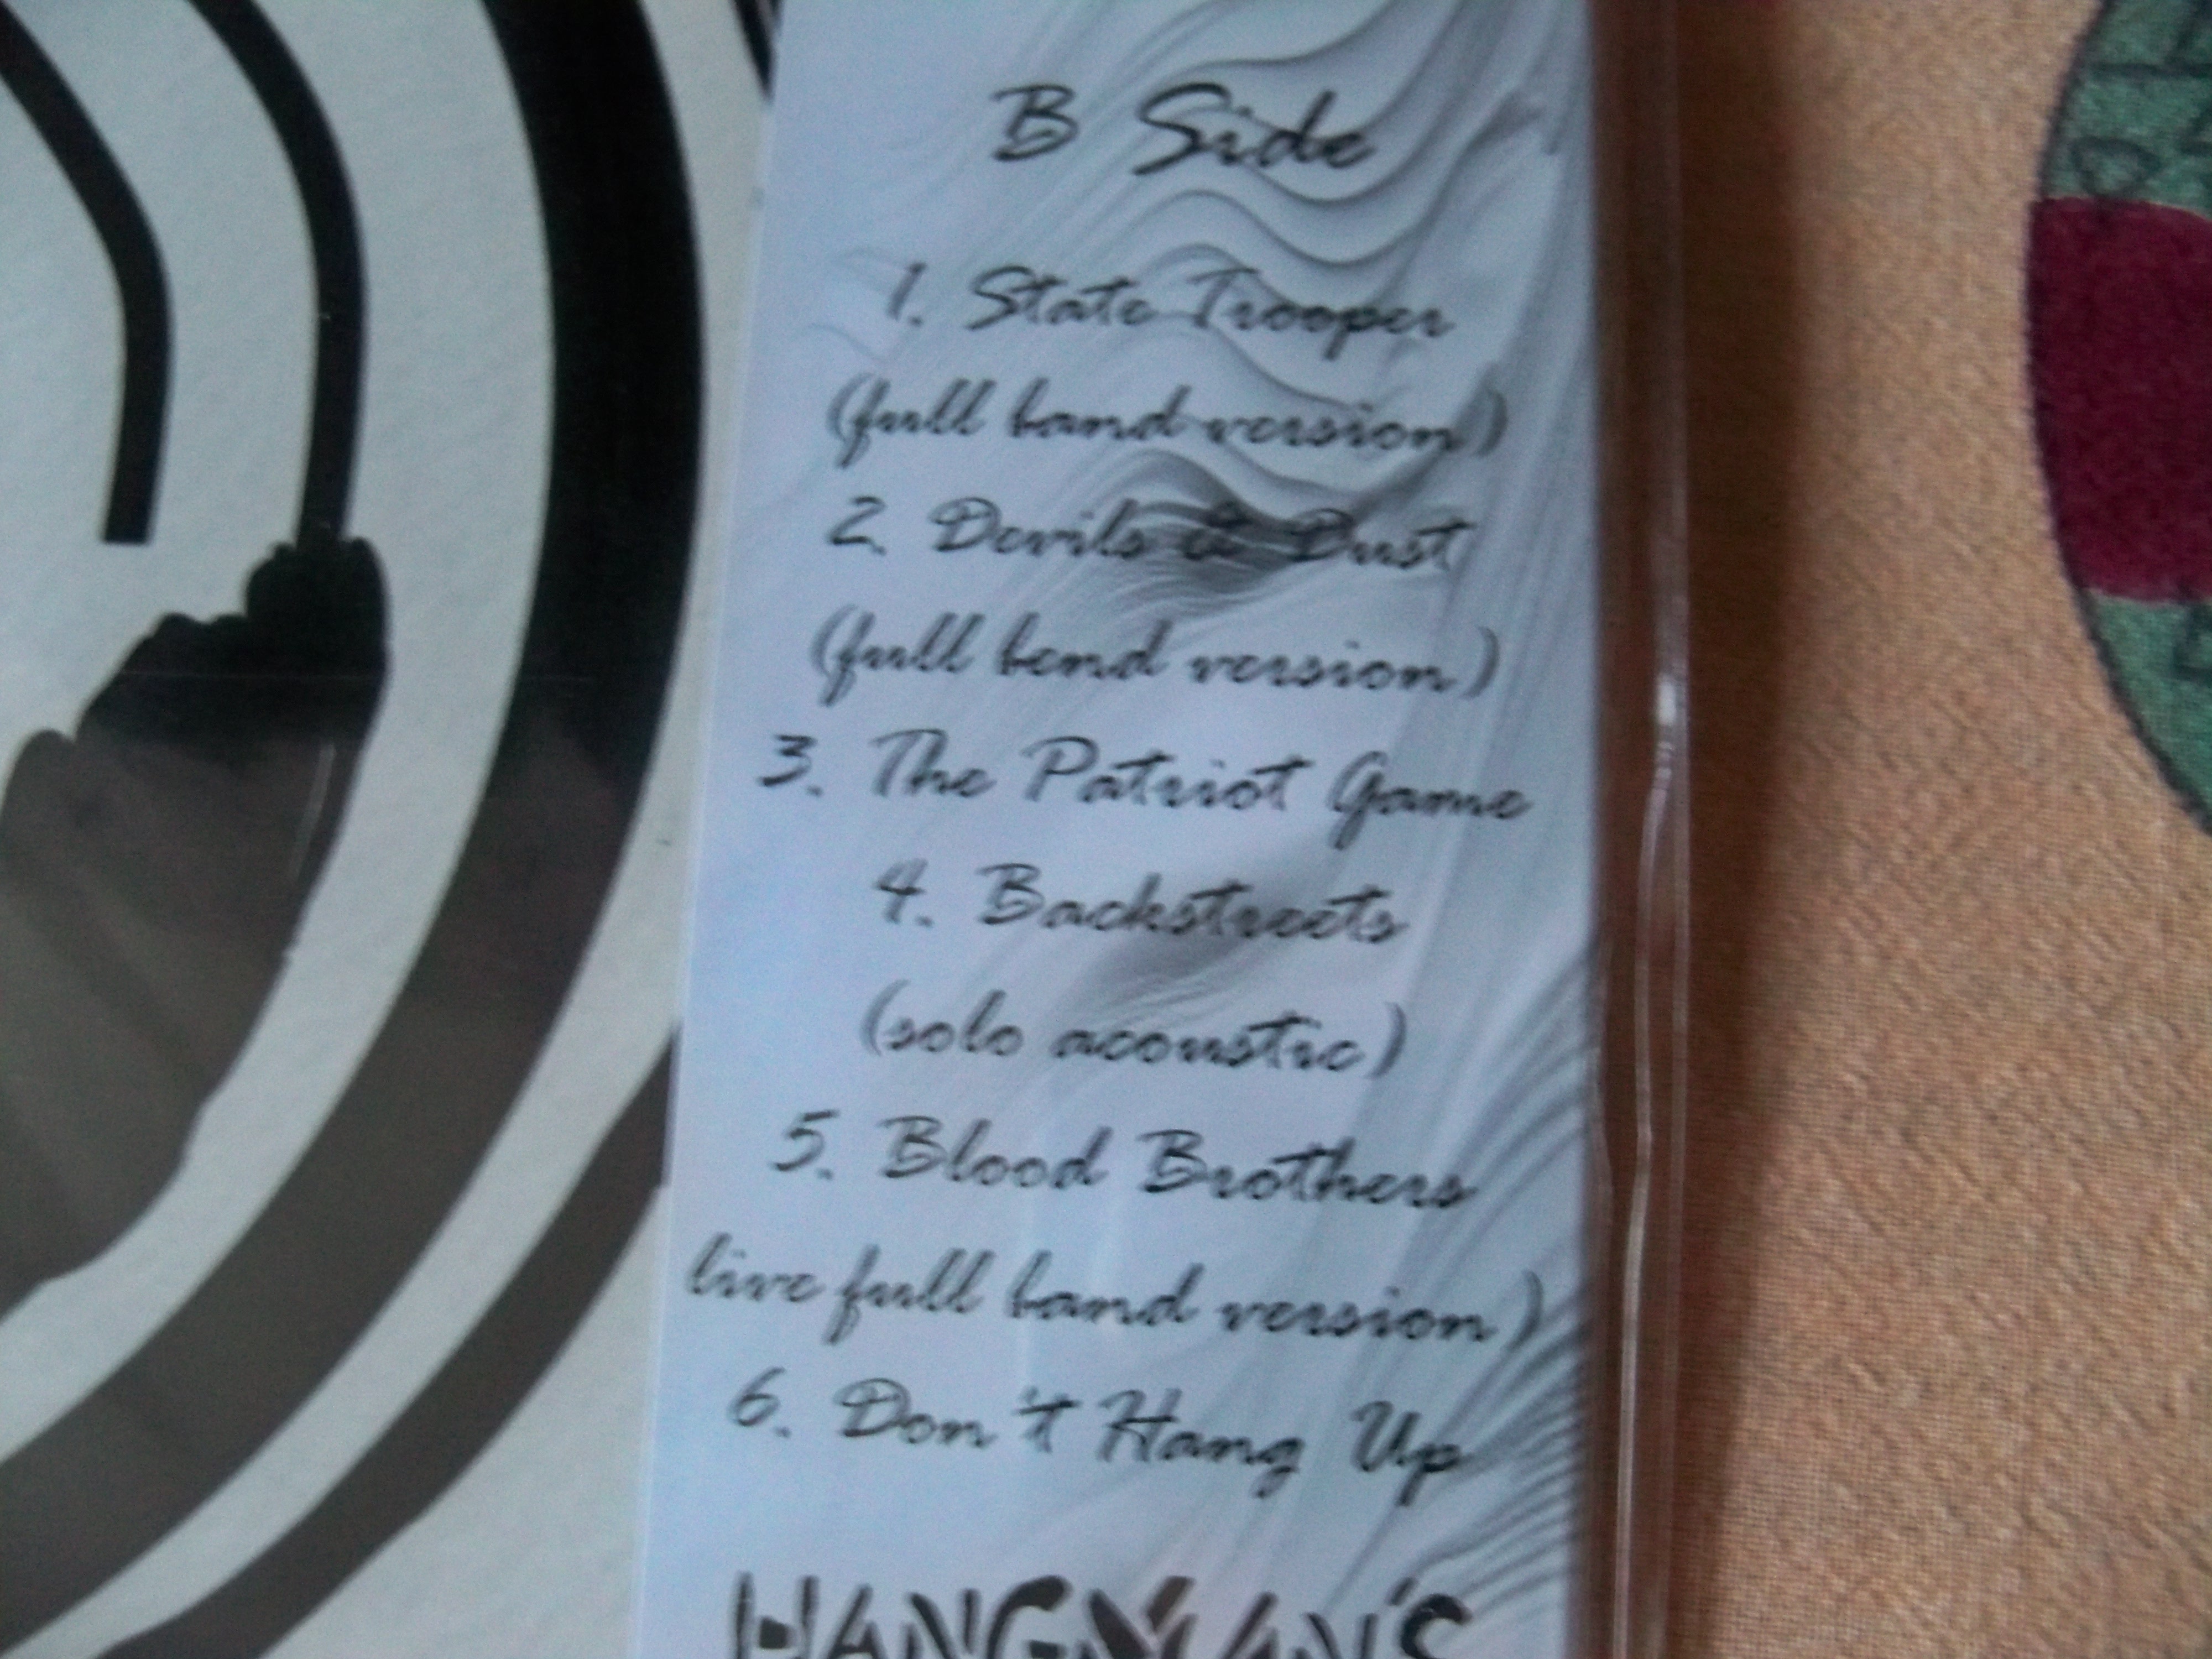 B Side
1. State Trooper
(full band version)
2. Devils & Dust
(full bend version)
3. The Patriot Game
4. Backstreets
(solo acoustic)
5. Blood Brothers
live full band version)
6. Don't Hang Up
HANGMAN'S